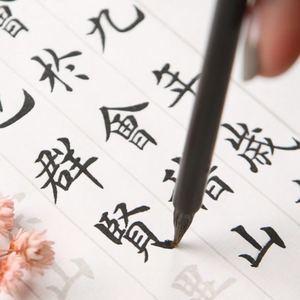 九年歲
會於會山
群賢